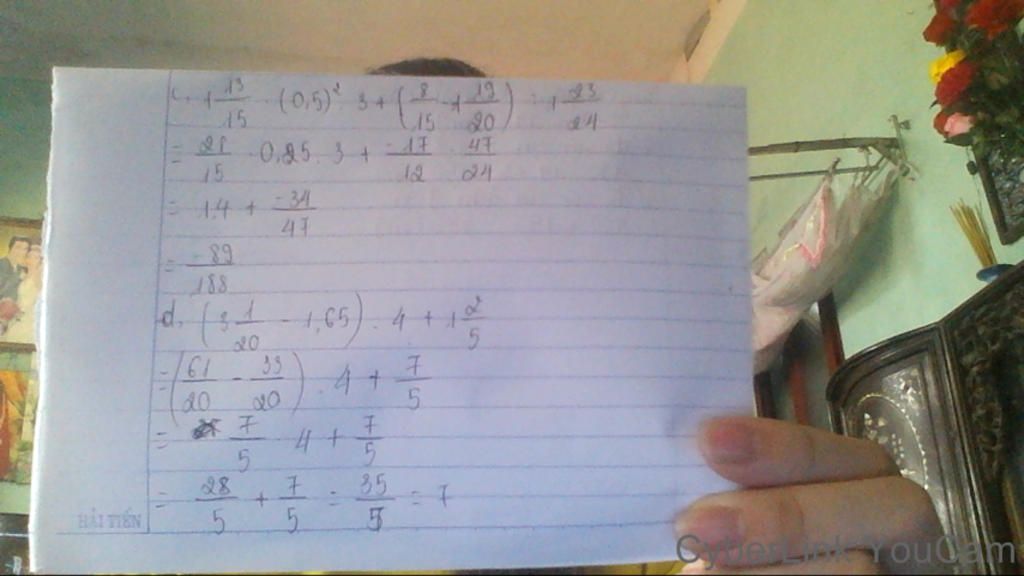 c. 1 13/15 · (0,5)² · 3 + (8/15 - 1 19/20) : 1 23/24
= 28/15 · 0,25 . 3 + -17/12 : 47/24
= 1,4 + -34/47
= -89/188
d. (3 1/20 - 1,65) . 4 + 1 2/5
= (61/20 - 33/20) . 4 + 7/5
= 7/5 · 4 + 7/5
= 28/5 + 7/5 = 35/5 = 7
HẢI TIẾN
CyberLink YouCam